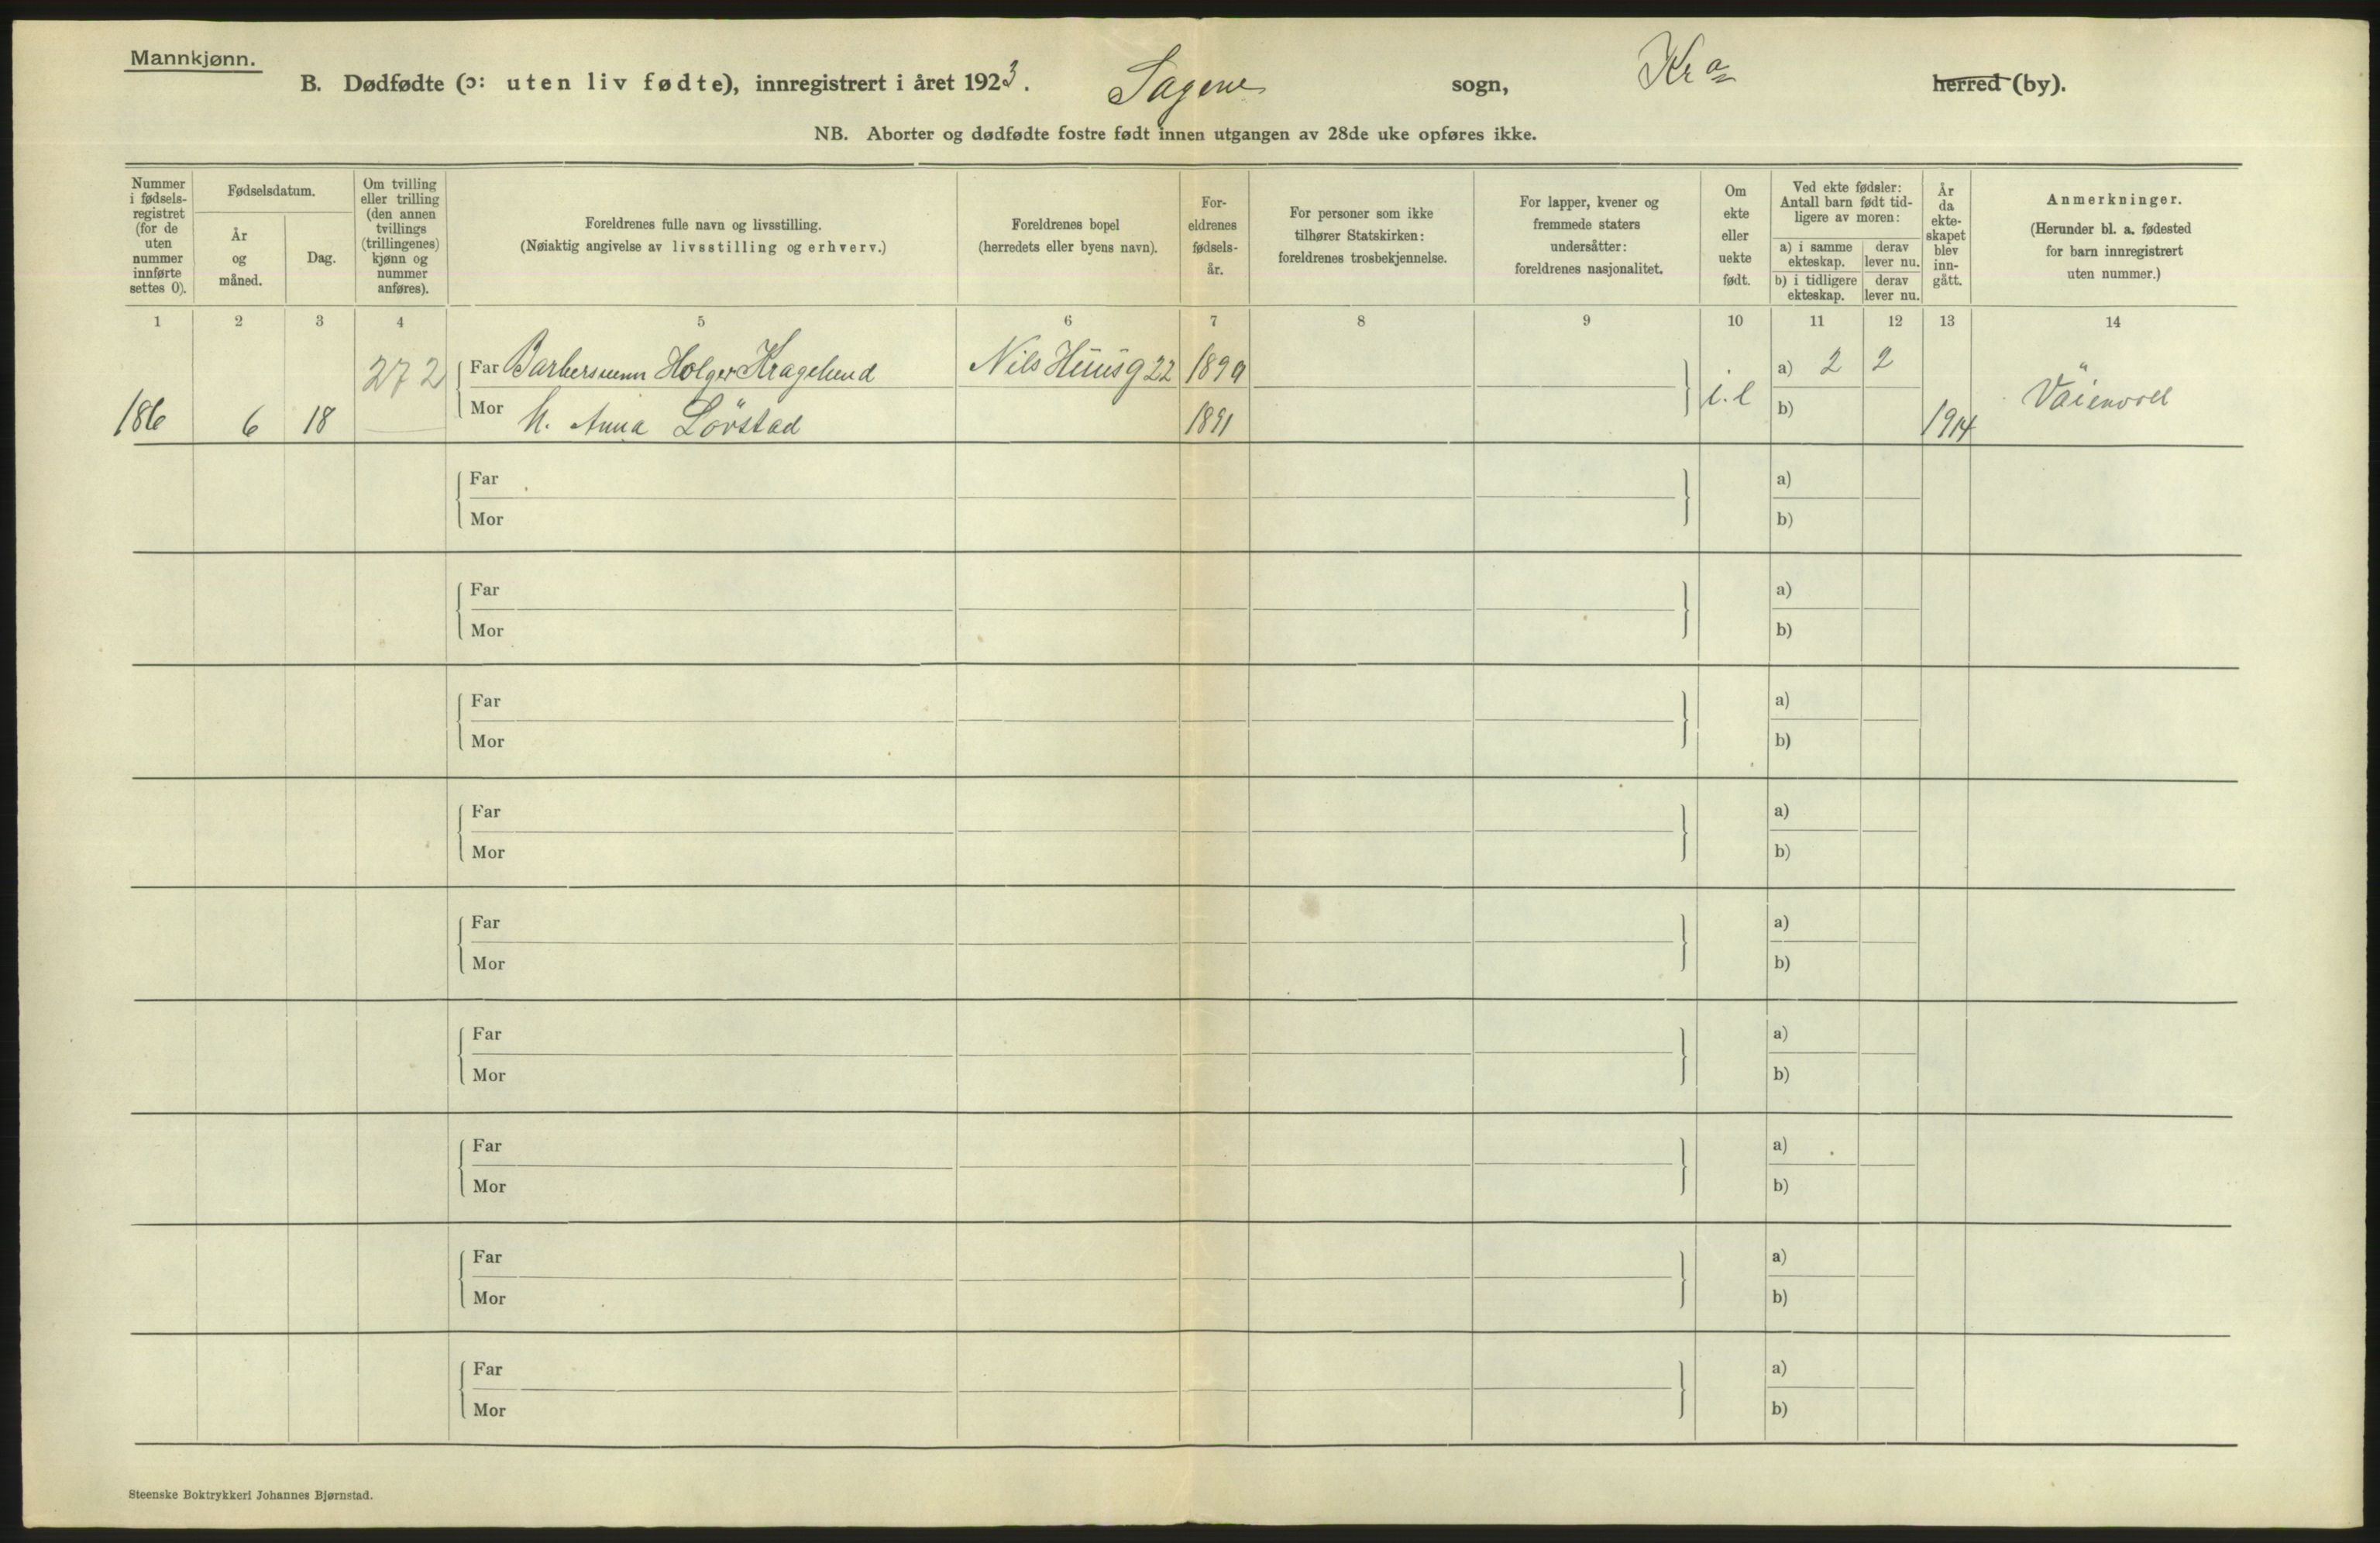 Mannkjønn.
B. Dødfødte (ɔ: uten liv fødte), innregistrert i året 1923. Sagene sogn, Kra herred (by).
NB. Aborter og dødfødte fostre født innen utgangen av 28de uke opføres ikke.
Nummer
i fødsels-
registret
(for de
uten
nummer
innførte
settes 0).
Fødselsdatum.
År
og
måned.
Dag.
Om tvilling
eller trilling
(den annen
tvillings
(trillingenes)
kjønn og
nummer
anføres).
Foreldrenes fulle navn og livsstilling.
(Nøiaktig angivelse av livsstilling og erhverv.)
Foreldrenes bopel
(herredets eller byens navn).
For-
eldrenes
fødsels-
år.
For personer som ikke
tilhører Statskirken:
foreldrenes trosbekjennelse.
For lapper, kvener og
fremmede staters
undersåtter:
foreldrenes nasjonalitet.
Om
ekte
eller
uekte
født.
Ved ekte fødsler:
Antall barn født tid-
ligere av moren:
a) i samme
ekteskap.
derav
lever nu.
b) i tidligere
ekteskap.
derav
lever nu.
År
da
ekte-
skapet
blev
inn-
gått.
Anmerkninger.
(Herunder bl. a. fødested
for barn innregistrert
uten nummer.)
1 2 3 4 5 6 7 8 9 10 11 12 13 14
272 Far Barbersvenn Holger Kragelund Nils Huusg 22 1899 a) 2 2
186 6 18 Mor h. Anna Lövstad 1891 i.e b) 1914
Far a)
Mor b)
Far a)
Mor b)
Far a)
Mor b)
Far a)
Mor b)
Far a)
Mor b)
Far a)
Mor b)
Far a)
Mor b)
Far a)
Mor b)
Far a)
Mor b)
Steenske Boktrykkeri Johannes Bjørnstad.